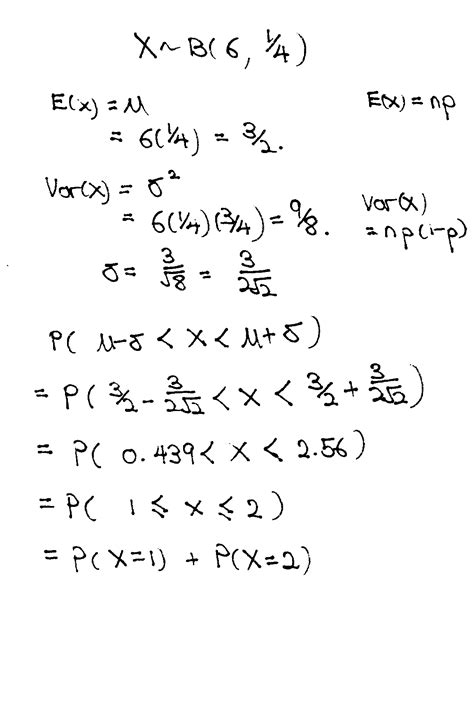 X~B(6, 1/4)
E(x) = μ
E(x) = np
= 6(1/4) = 3/2.
Var(x) = σ²
= 6(1/4)(3/4) = 9/8.
Var(x)
= np(1-p)
σ = 3/√8 = 3/2√2
P( μ-σ < X < μ+σ )
= P( 3/2 - 3/2√2 < X < 3/2 + 3/2√2 )
= P( 0.439 < X < 2.56 )
= P( 1 ≤ x ≤ 2 )
= P(X=1) + P(X=2)